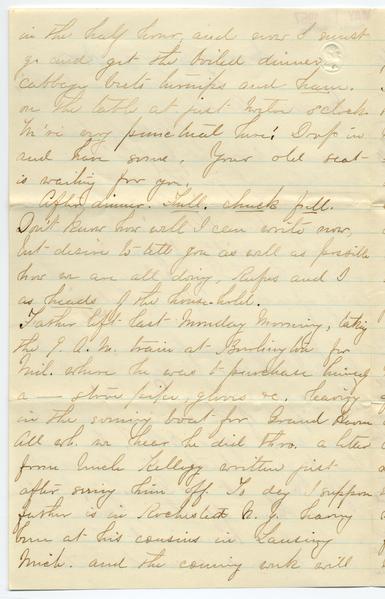 in the half hour, and now I must
go and get the boiled dinner,
cabbage beets turnips and ham.
on the table at just twelve o'clock.
We're very punctual now! Drop in
and have some. Your old seat
is waiting for you.
After dinner. Full. chuck full.
Don't know how well I can write now,
but desire to tell you as well as possible
how we are all doing, Rufus and I
as heads of the house-hold.
Father left last Monday Morning, taking
the 9 A.M. train at Burlington for
Mil. where he was to purchase himself
a — stove pipe, gloves &c. leaving
in the evening boat for Grand Haven
All wh. we hear he did thro. a letter
from Uncle Kellogg written just
after seeing him off. To day I suppose
father is in Rochester N. Y. having
been at his cousins in Lansing
Mich. and the coming week will